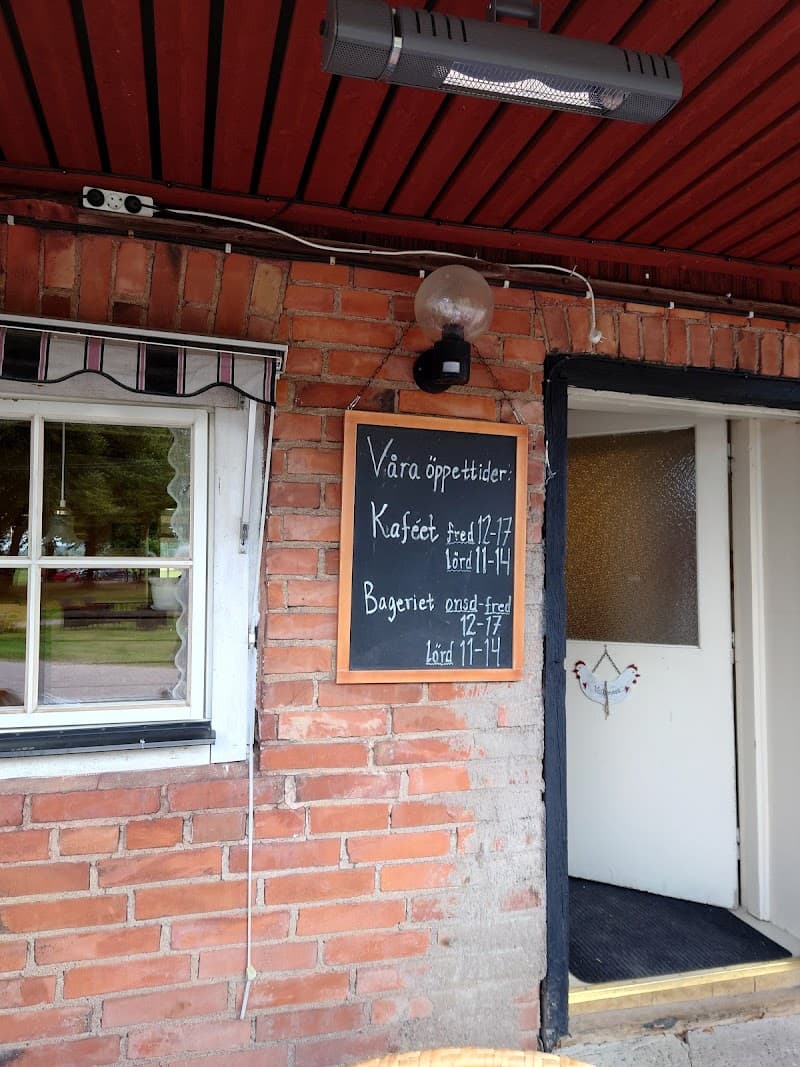 Våra öppettider:
Kaféet fred 12-17
lörd 11-14
Bageriet onsd-fred
12-17
lörd 11-14